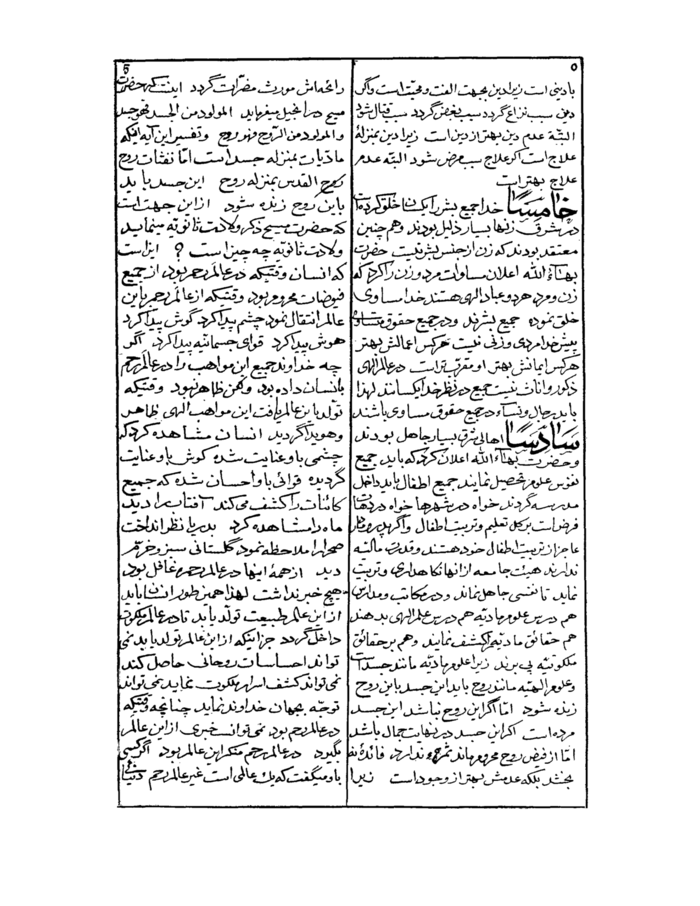 ۵
بادینی است زیرا دین بجهت الفت و محبّت است و اگر
دین سبب نزاع گردد سبب بغض گردد سبب قتال شود
البتّه عدم دین بهتر از دین است زیرا دین بمنزلهٔ
علاج است اگر علاج سبب مرض شود البتّه عدم
علاج بهتر است
خامساً خدا جمیع بشر را یکسان خلق کرده است
در شرق زنها بسیار ذلیل بودند و هم چنین
معتقد بودند که زن از جنس بشر نیست حضرت
بهاءالله اعلان مساوات مرد و زن را کرد که
زن و مرد هر دو عباد الهی هستند خدا مساوی
خلق نموده جمیع بشرند و در جمیع حقوق مساوی
پیش خدا مردی و زنی نیست هر کس اعمالش بهتر
هر کس ایمانش بهتر او مقرّب‌تر است در عالم الهی
ذکور و اناث نیست جمیع در نظر خدا یکسانند لهذا
باید رجال و نساء در جمیع حقوق مساوی باشند
سادساً اهالی شرق بسیار جاهل بودند
و حضرت بهاءالله اعلان کرد که باید جمیع
نفوس علوم تحصیل نمایند جمیع اطفال باید داخل
مدرسه گردند خواه در شهرها خواه در دهات
فرض است بر کل تعلیم و تربیت اطفال و اگر پدر و مادر
عاجز از تربیت اطفال خود هستند و قدرت مالیّه
ندارند هیئت جامعه از آنها نگاهداری و تربیت
نماید تا نفسی جاهل نماند و در مکاتب و مدارس
هم درس علوم مادیّه هم درس علم الهی بدهند
هم حقائق مادیّه را کشف نمایند و هم بر حقائق
ملکوتیّه پی برند زیرا علوم مادیّه مانند جسد است
و علوم الهیّه مانند روح باید این جسد باین روح
زنده شود امّا اگر این روح نباشد این جسد
مرده است اگر این جسد در نهایت جمال باشد
امّا از فیض روح محروم ماند ثمره ندارد فائدهٔ نه
بخشد بلکه عدمش بهتر از وجود است زیرا
۶
رائحه‌اش مورث مضرّات گردد اینست که حضرت
مسیح در انجیل میفرماید المولود من الجسد فهو جسد
و المولود من الرّوح فهو روح و تفسیر این آیه اینکه
مادیّات بمنزله جسد است امّا نفثات روح
روح القدس بمنزله روح این جسد باید
باین روح زنده شود از این جهت است
که حضرت مسیح ذکر ولادت ثانویّه مینماید
ولادت ثانویّه چه چیز است ؟ این است
که انسان وقتیکه در عالم رحم بود از جمیع
فیوضات محروم بود وقتیکه از عالم رحم باین
عالم انتقال نمود چشم پیدا کرد گوش پیدا کرد
هوش پیدا کرد قوای جسمانیّه پیدا کرد اگر
چه خداوند جمیع این مواهب را در عالم رحم
بانسان داده بود ولکن ظاهر نبود وقتیکه
تولّد باین عالم یافت این مواهب الهی ظاهر
و هویدا گردید انسان مشاهده کرد که
چشمی باو عنایت شده گوش باو عنایت
گردیده قوائی باو احسان شده که جمیع
کائنات را کشف می‌کند آفتاب را دید
ماه را مشاهده کرد بدریا نظر انداخت
صحرا را ملاحظه نمود گلستانی سبز و خرّم
دید از همهٔ اینها در عالم رحم غافل بود
هیچ خبر نداشت لهذا همین طور انسان باید
از این عالم طبیعت تولّد یابد تا در عالم ملکوت
داخل گردد جز اینکه از این عالم تولّد یابد نمی
تواند احساسات روحانی حاصل کند
نمی‌تواند کشف اسرار ملکوت نماید نمی‌تواند
توجّه بجهان خداوند نماید چنانچه وقتیکه
در عالم رحم بود نمی‌توانست خبری از این عالم
بگیرد در عالم رحم منکر این عالم بود اگر کسی
باو میگفت که یک عالمی است غیر عالم رحم دنیائی